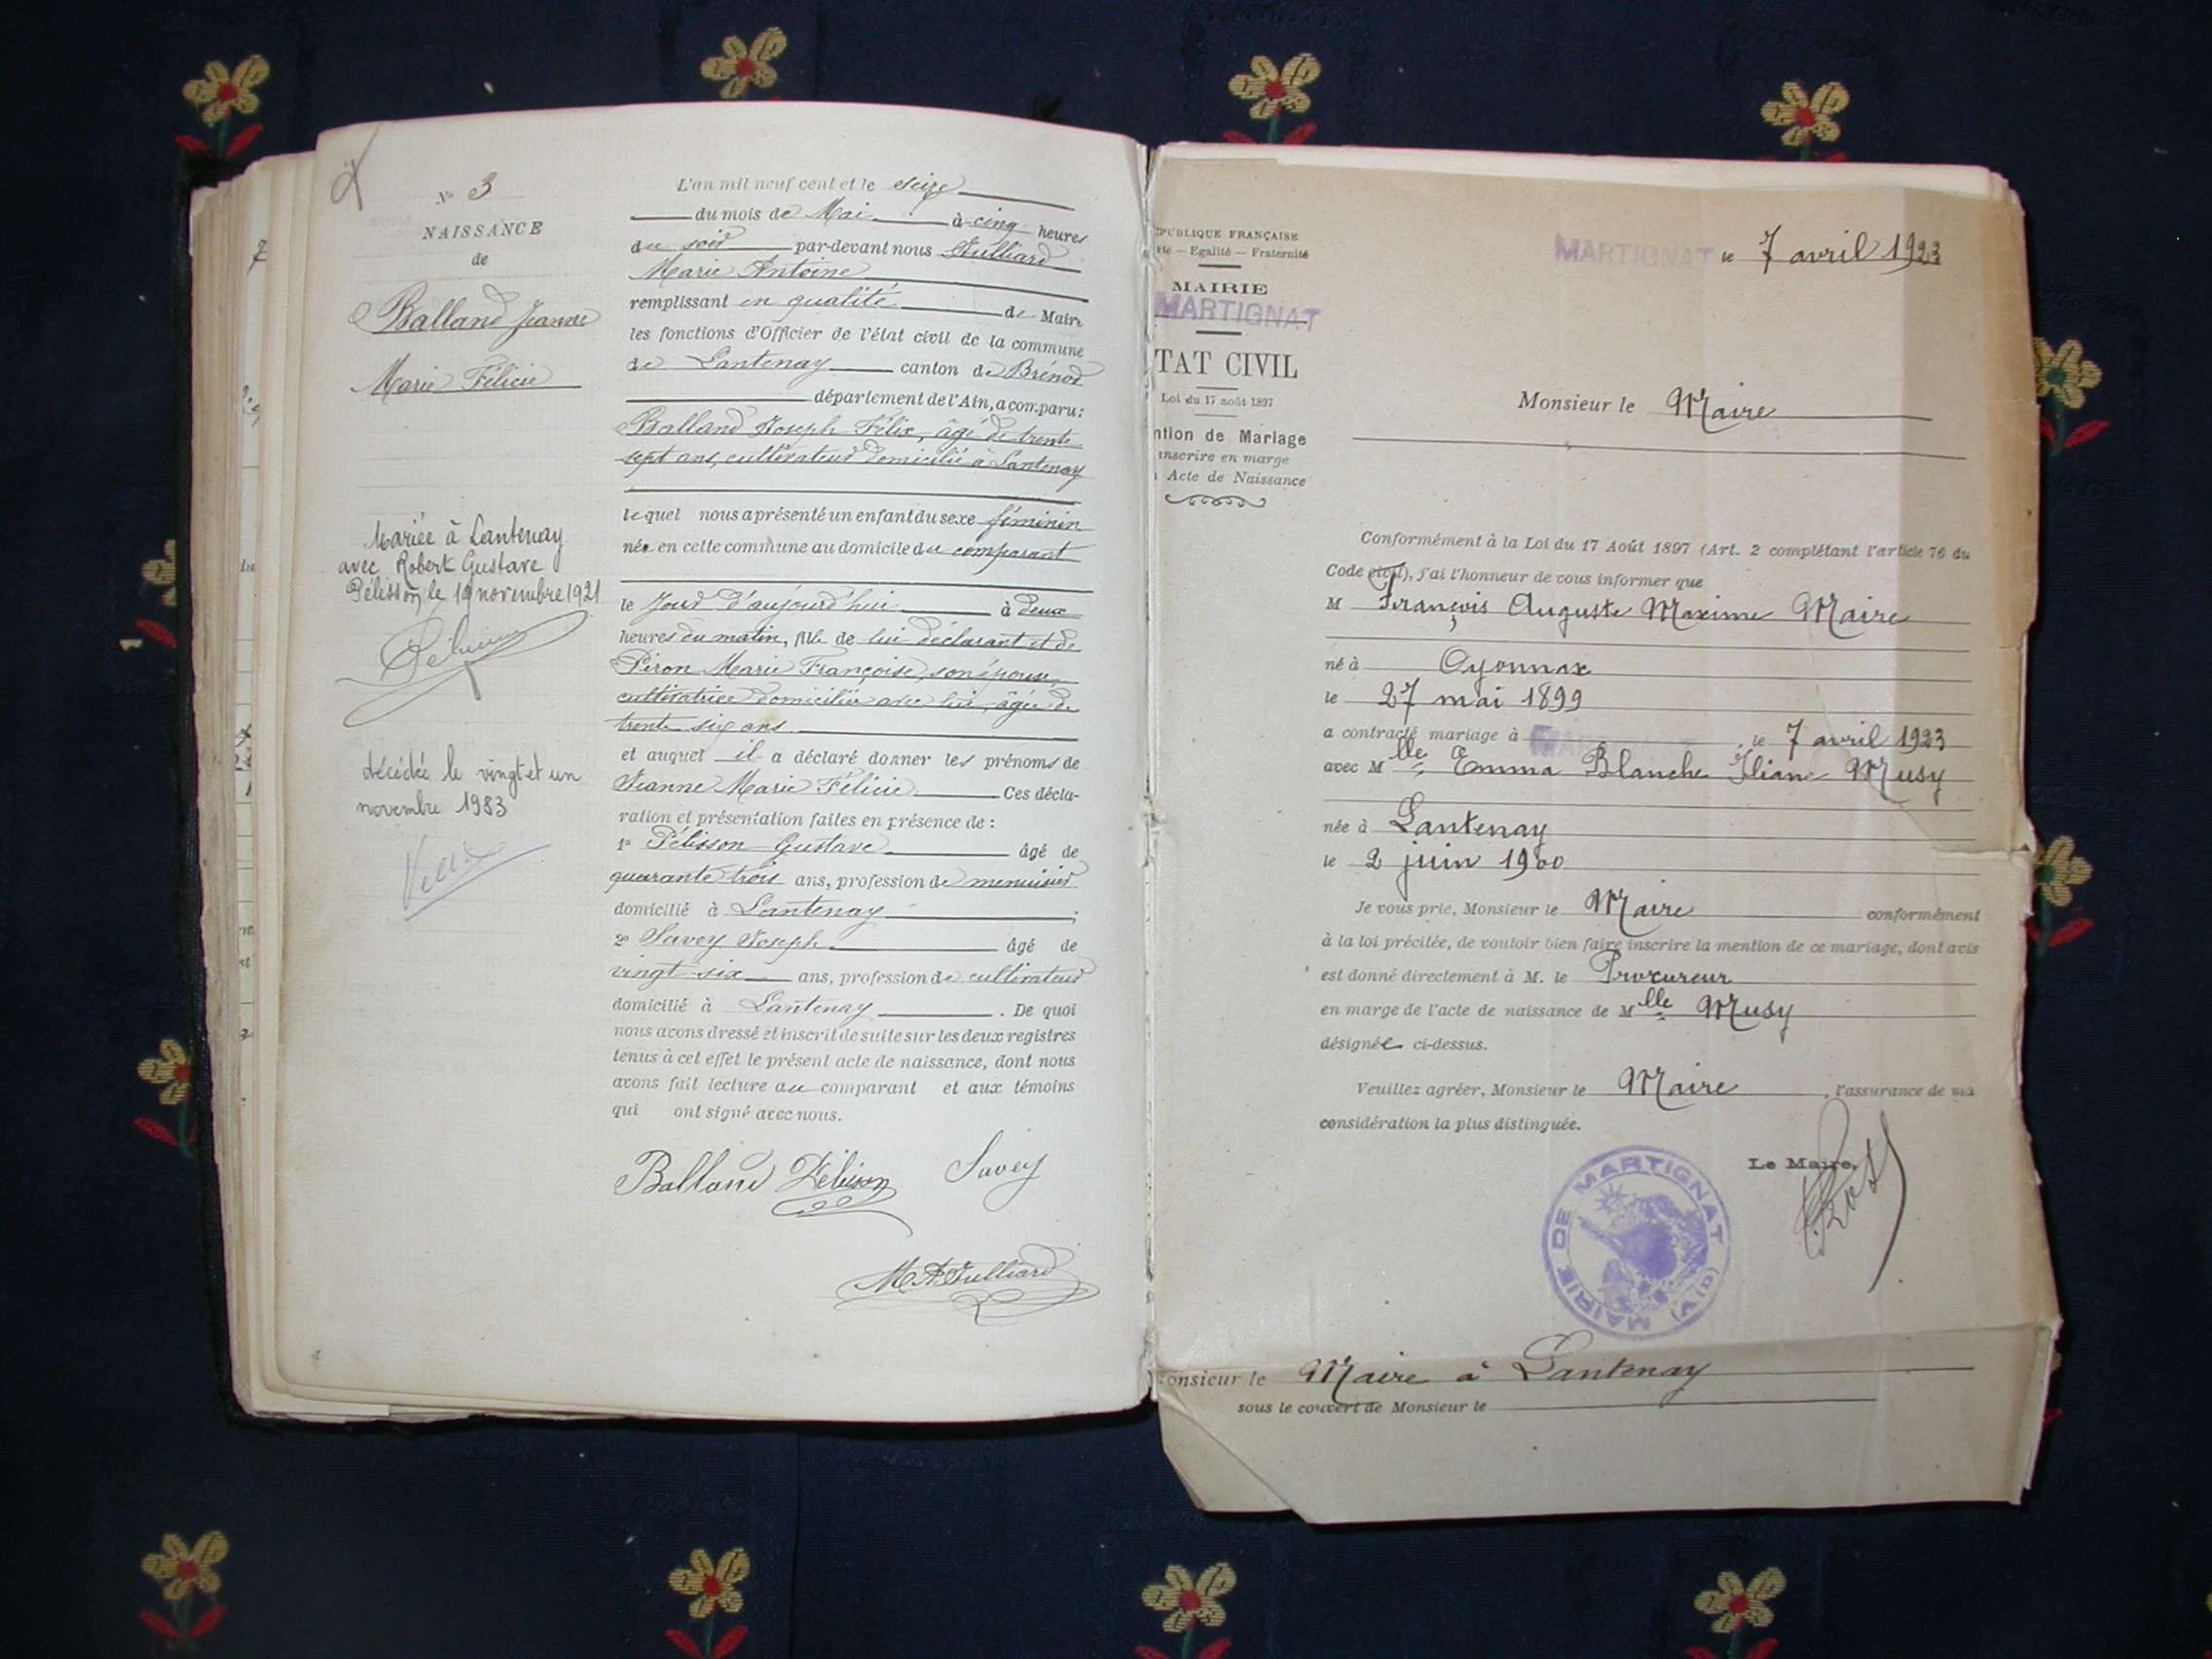 N° 3
NAISSANCE
de
Balland Jeanne
Marie Félicie
Mariée à Lantenay
avec Robert Gustave
Pélisson le 19 novembre 1921
décédée le vingt et un
novembre 1983
L'an mil neuf cent et le seize
du mois de Mai à cinq heures
du soir par-devant nous Julliard
Marie Antoine
remplissant en qualité de Maire
les fonctions d'Officier de l'état civil de la commune
de Lantenay canton de Brénod
département de l'Ain, a comparu:
Balland Joseph Félix, âgé de trente
sept ans, cultivateur domicilié à Lantenay
lequel nous a présenté un enfant du sexe féminin
née en cette commune au domicile du comparant
le jour d'aujourd'hui à deux
heures du matin, fille de lui déclarant et de
Piron Marie Françoise, son épouse,
cultivatrice domiciliée avec lui, âgée de
trente six ans
et auquel il a déclaré donner les prénoms de
Jeanne Marie Félicie Ces décla-
ration et présentation faites en présence de :
1° Pélisson Gustave âgé de
quarante trois ans, profession de menuisier
domicilié à Lantenay ;
2° Savey Joseph âgé de
vingt six ans, profession de cultivateur
domicilié à Lantenay . De quoi
nous avons dressé et inscrit de suite sur les deux registres
tenus à cet effet le présent acte de naissance, dont nous
avons fait lecture au comparant et aux témoins
qui ont signé avec nous.
Balland Pélisson Savey
M A Julliard
ÉPUBLIQUE FRANÇAISE
rté — Egalité — Fraternité
MAIRIE
MARTIGNAT
TAT CIVIL
Loi du 17 août 1897
ntion de Mariage
inscrire en marge
Acte de Naissance
MARTIGNAT le 7 avril 1923
Monsieur le Maire
Conformément à la Loi du 17 Août 1897 (Art. 2 complétant l'article 76 du
Code civil), j'ai l'honneur de vous informer que
M François Auguste Maxime Maire
né à Oyonnax
le 27 mai 1899
a contracté mariage à MARTIGNAT, le 7 avril 1923
avec Mlle Emma Blanche Iliane Musy
née à Lantenay
le 2 juin 1900
Je vous prie, Monsieur le Maire conformément
à la loi précitée, de vouloir bien faire inscrire la mention de ce mariage, dont avis
est donné directement à M. le Procureur
en marge de l'acte de naissance de Mlle Musy
désignée ci-dessus.
Veuillez agréer, Monsieur le Maire, l'assurance de ma
considération la plus distinguée.
Le Maire,
MAIRIE DE MARTIGNAT (AIN)
onsieur le Maire à Lantenay
sous le couvert de Monsieur le